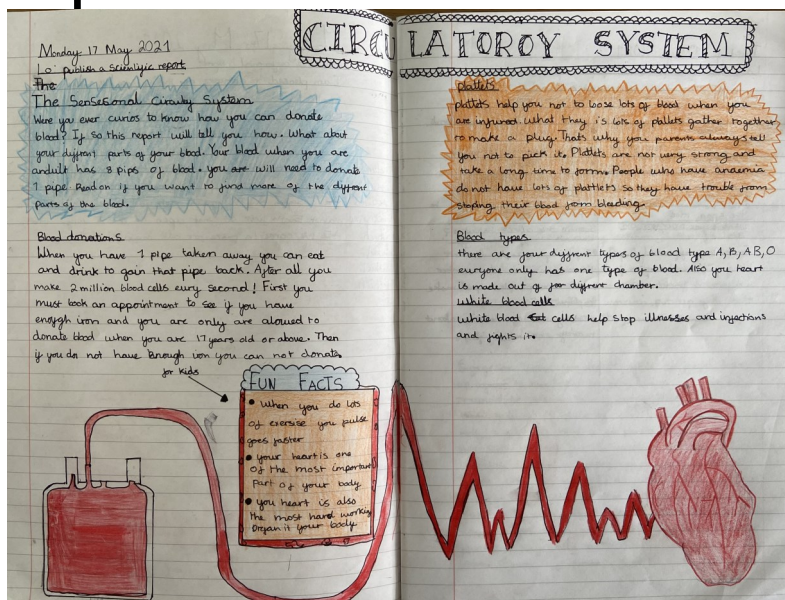 CIRCULATOROY SYSTEM
Monday 17 May 2021
Lo: publish a scientific report
The
The Sensesonal Circuty System
Were ya ever curios to know how you can donate
blood? If so this report will tell you how. What about
your diffrent parts of your blood. Your blood when you are
andult has 8 pips of blood. you are will need to donate
1 pipe. Read on if you want to find more of the diffrent
parts of the blood.
Blood donations
When you have 1 pipe taken away you can eat
and drink to gain that pipe back. After all you
make 2 million blood cells eury second! First you
must book an appointment to see if you have
enough iron and you are only are alowed to
donate blood when you are 17 years old or above. Then
if you do not have enough iron you can not donate.
for kids
FUN FACTS
• When you do lots
of exersise you pulse
goes faster
• your heart is one
of the most important
part of your body
• you heart is also
the most hard working
Organ it your body
platlets
platlets help you not to loose lots of blood when you
are injured. what they is lots of pllets gather together
to make a plug. Thats why you parents always tell
you not to pick it. Platlets are not very strong and
take a long time to form. People who have anaemia
do not have lots of plattlets so they have trouble from
stoping their blood from bleeding.
Blood types
there are four diffrent types of blood type A, B, AB, O
euryone only has one type of blood. Also you heart
is made out of four diffrent chamber.
White blood cells
White blood cells help stop illnesses and infections
and fights it.